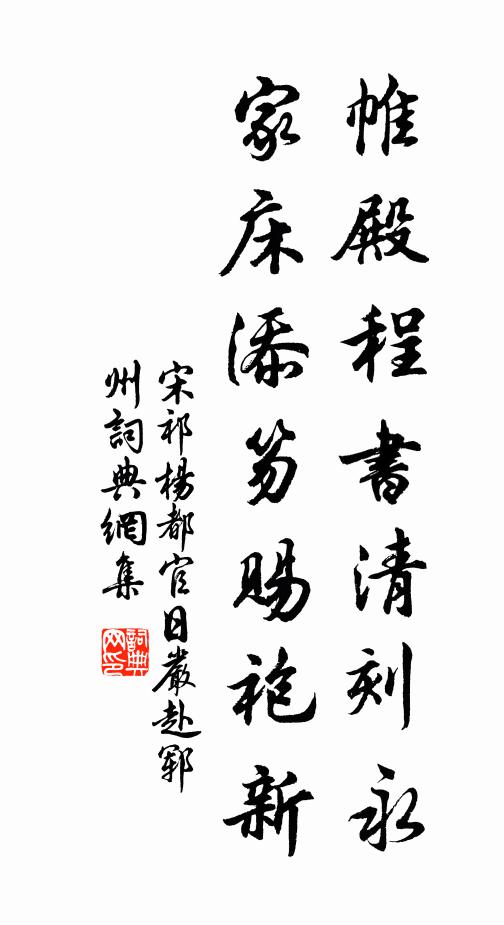 帷殿程書清刻永
家床添笏賜袍新
宋祁楊都官日嚴赴鄆
州詞典網集
詞典网印